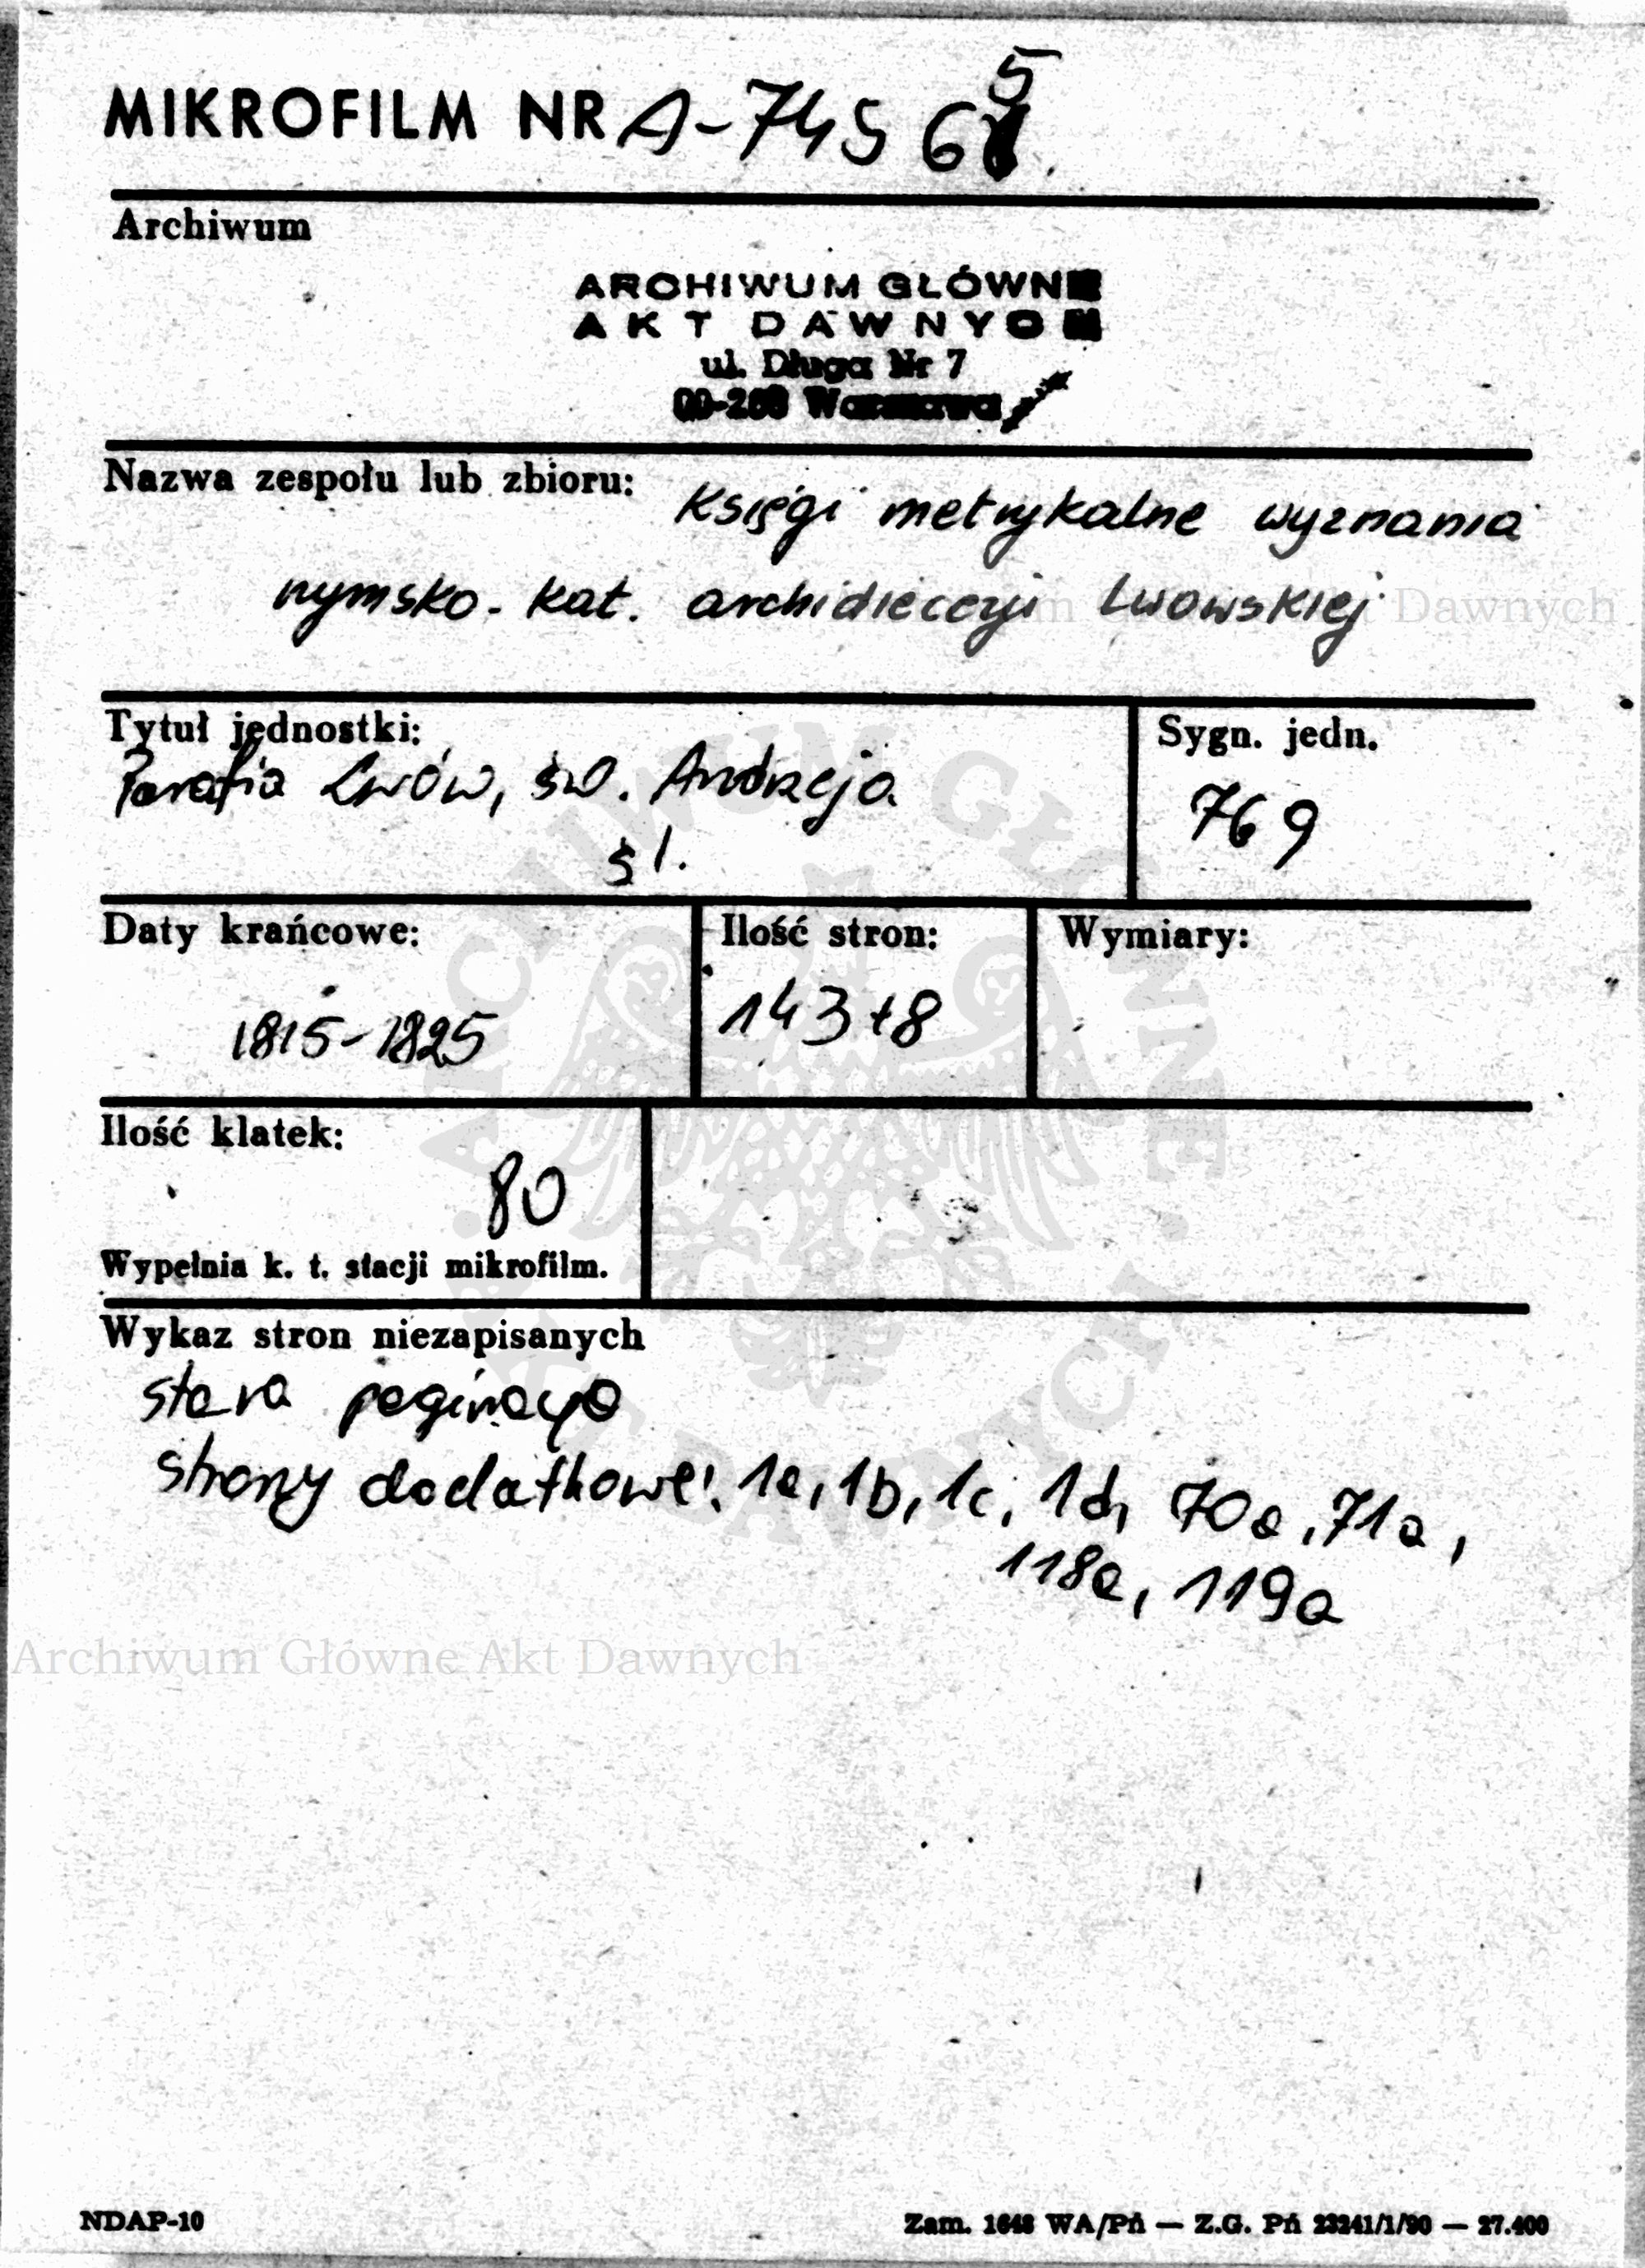 MIKROFILM NR A-74565
Archiwum
ARCHIWUM GŁÓWNE
AKT DAWNYCH
ul. Długa Nr 7
00-263 Warszawa
Nazwa zespołu lub zbioru: Księgi metrykalne wyznania
rzymsko-kat. archidiecezji Lwowskiej
Tytuł jednostki:
Parafia Lwów, św. Andrzeja
śl.
Sygn. jedn.
769
Daty krańcowe:
1815-1825
Ilość stron:
143+8
Wymiary:
Ilość klatek:
80
Wypełnia k. t. stacji mikrofilm.
Wykaz stron niezapisanych
stara paginacja
strony dodatkowe: 1a, 1b, 1c, 1d, 70a, 71a,
118a, 119a
Archiwum Główne Akt Dawnych
NDAP-10
Zam. 1648 WA/Pń — Z.G. Pń 23241/1/90 — 27.400